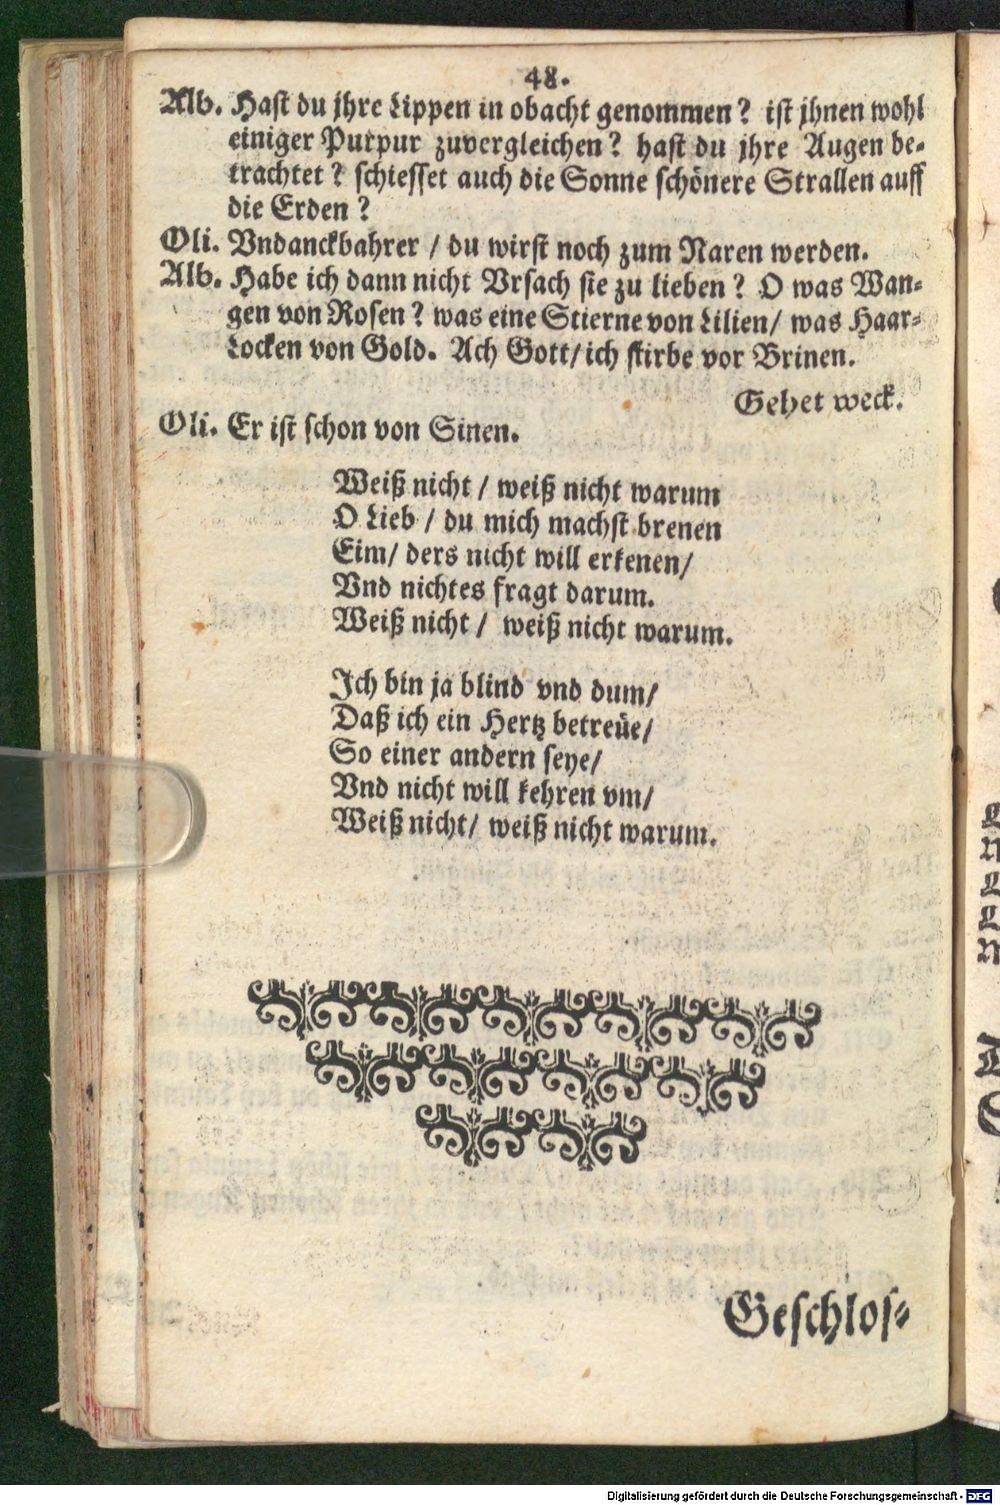 48.
Alb. Hast du jhre Lippen in obacht genommen? ist jhnen wohl
einiger Purpur zuvergleichen? hast du jhre Augen be-
trachtet? schiesset auch die Sonne schönere Strallen auff
die Erden?
Oli. Vndanckbahrer / du wirst noch zum Naren werden.
Alb. Habe ich dann nicht Vrsach sie zu lieben? O was Wan-
gen von Rosen? was eine Stierne von Lilien/ was Haar-
Locken von Gold. Ach Gott/ ich stirbe vor Brinen.
Gehet weck.
Oli. Er ist schon von Sinen.
Weiß nicht / weiß nicht warum
O Lieb / du mich machst brenen
Eim/ ders nicht will erkenen/
Vnd nichtes fragt darum.
Weiß nicht / weiß nicht warum.
Ich bin ja blind vnd dum/
Daß ich ein Hertz betreüe/
So einer andern seye/
Vnd nicht will kehren vm/
Weiß nicht/ weiß nicht warum.
Geschlos-
Digitalisierung gefördert durch die Deutsche Forschungsgemeinschaft - DFG